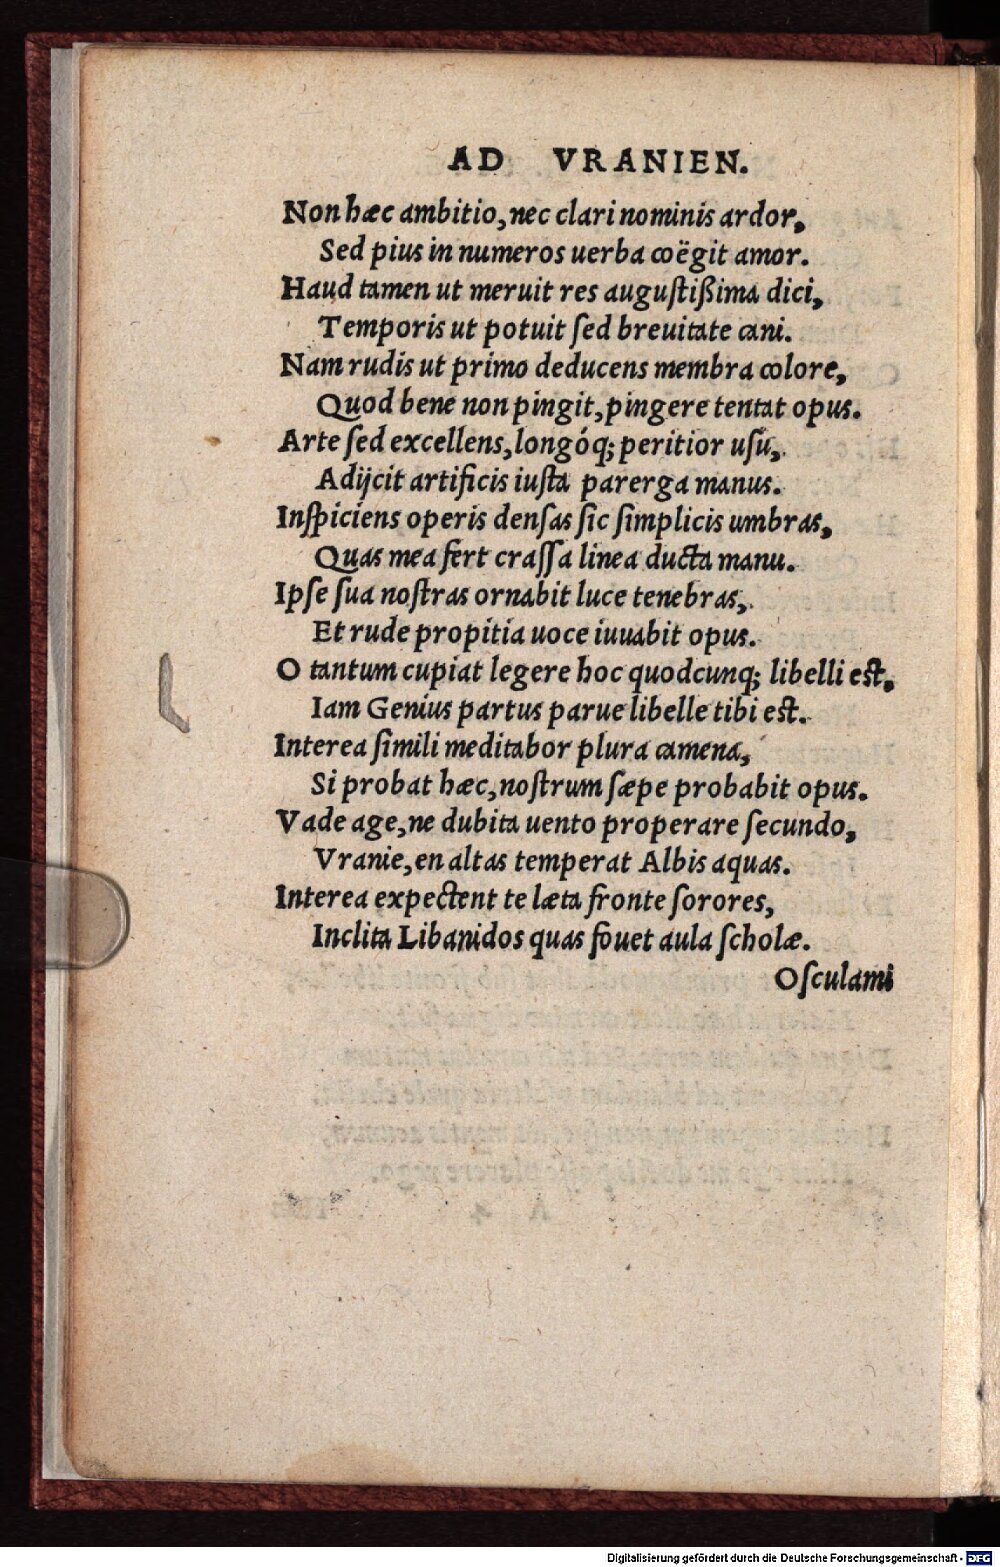 AD VRANIEN.
Non hæc ambitio, nec clari nominis ardor,
Sed pius in numeros uerba coëgit amor.
Haud tamen ut meruit res auguſtißima dici,
Temporis ut potuit ſed breuitate cani.
Nam rudis ut primo deducens membra colore,
Quod bene non pingit, pingere tentat opus.
Arte ſed excellens, longóq; peritior uſu,
Adijcit artificis iuſta parerga manus.
Inſpiciens operis denſas ſic ſimplicis umbras,
Quas mea fert craſſa linea ducta manu.
Ipſe ſua noſtras ornabit luce tenebras,
Et rude propitia uoce iuuabit opus.
O tantum cupiat legere hoc quodcunq; libelli eſt,
Iam Genius partus parue libelle tibi eſt.
Interea ſimili meditabor plura camena,
Si probat hæc, noſtrum ſæpe probabit opus.
Vade age, ne dubita uento properare ſecundo,
Vranie, en altas temperat Albis aquas.
Interea expectent te læta fronte ſorores,
Inclita Libanidos quas fouet aula ſcholæ.
Oſculami
Digitalisierung gefördert durch die Deutsche Forschungsgemeinschaft - DFG